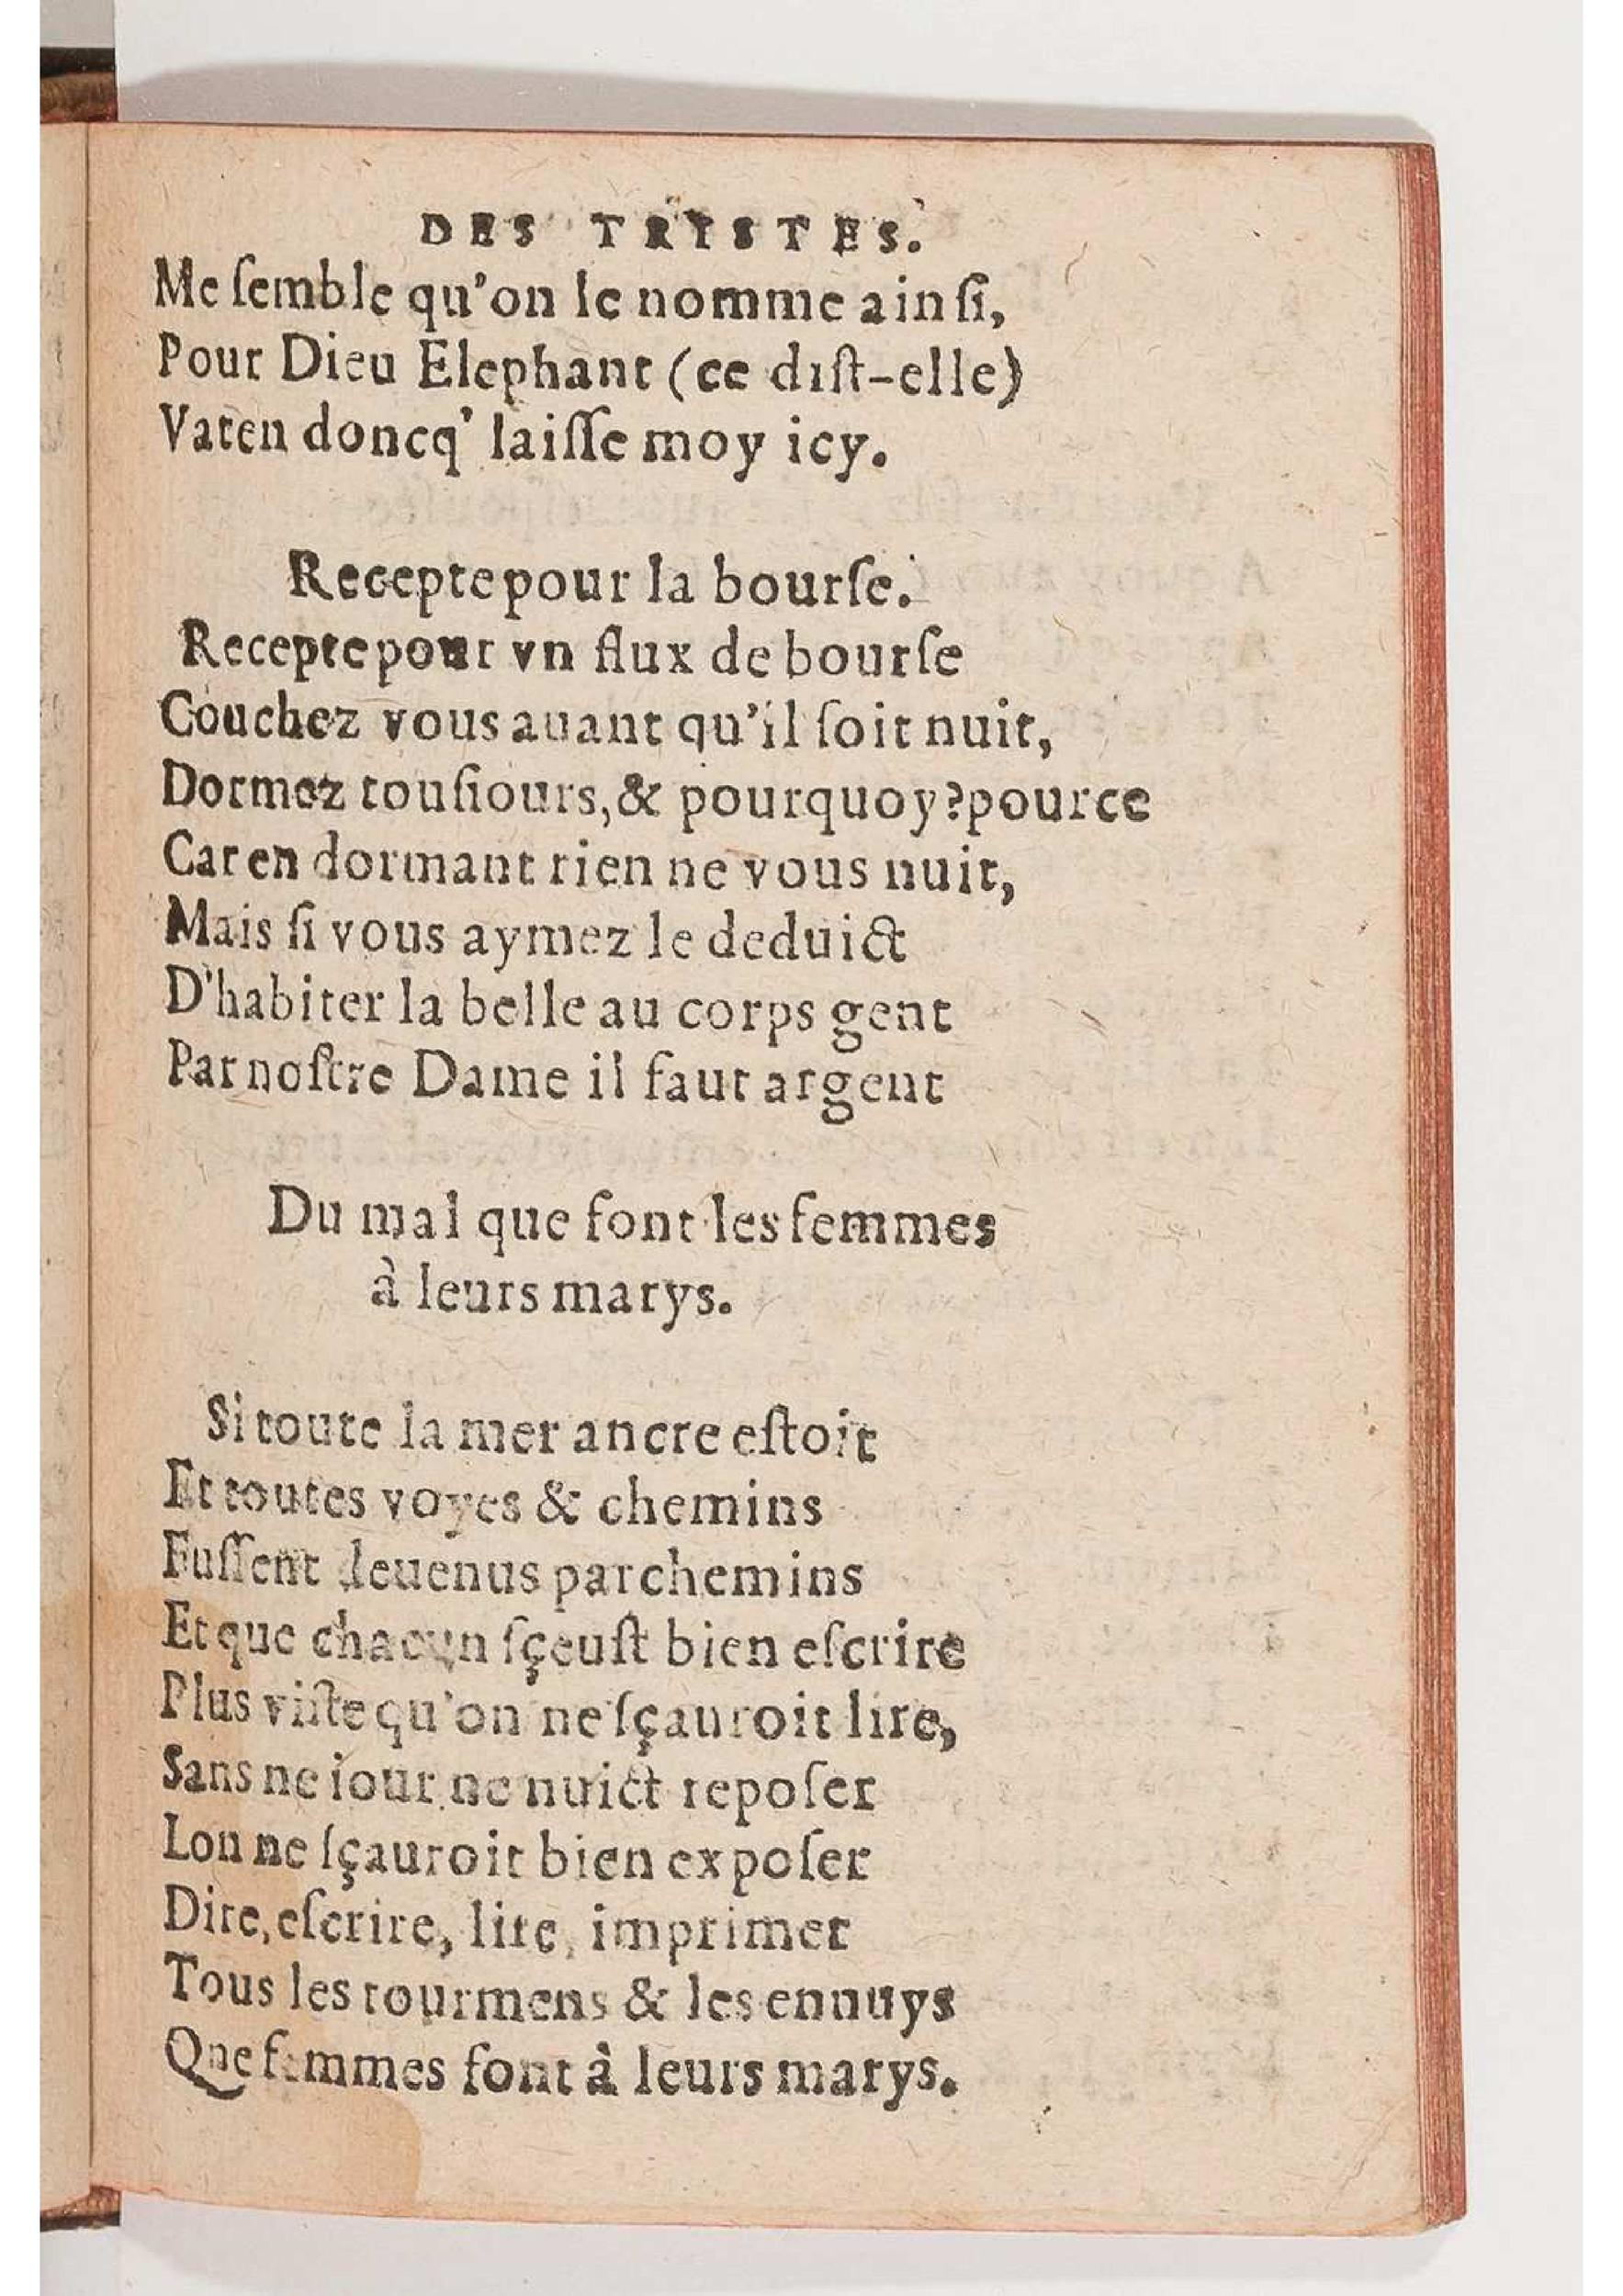 DES TRISTES.
Me ſemble qu'on le nomme ainſi,
Pour Dieu Elephant (ce diſt-elle)
Vaten doncq' laiſſe moy icy.
Recepte pour la bourſe.
Recepte pour vn flux de bourſe
Couchez vous auant qu'il ſoit nuit,
Dormez touſiours, & pourquoy? pource
Car en dormant rien ne vous nuit,
Mais ſi vous aymez le deduict
D'habiter la belle au corps gent
Par noſtre Dame il faut argent
Du mal que font les femmes
à leurs marys.
Si toute la mer ancre eſtoit
Et toutes voyes & chemins
Fuſſent deuenus parchemins
Et que chacun ſçeuſt bien eſcrire
Plus viſte qu'on ne ſçauroit lire,
Sans ne iour ne nuict repoſer
Lon ne ſçauroit bien expoſer
Dire, eſcrire, lire, imprimer
Tous les tourmens & les ennuys
Que femmes font à leurs marys.